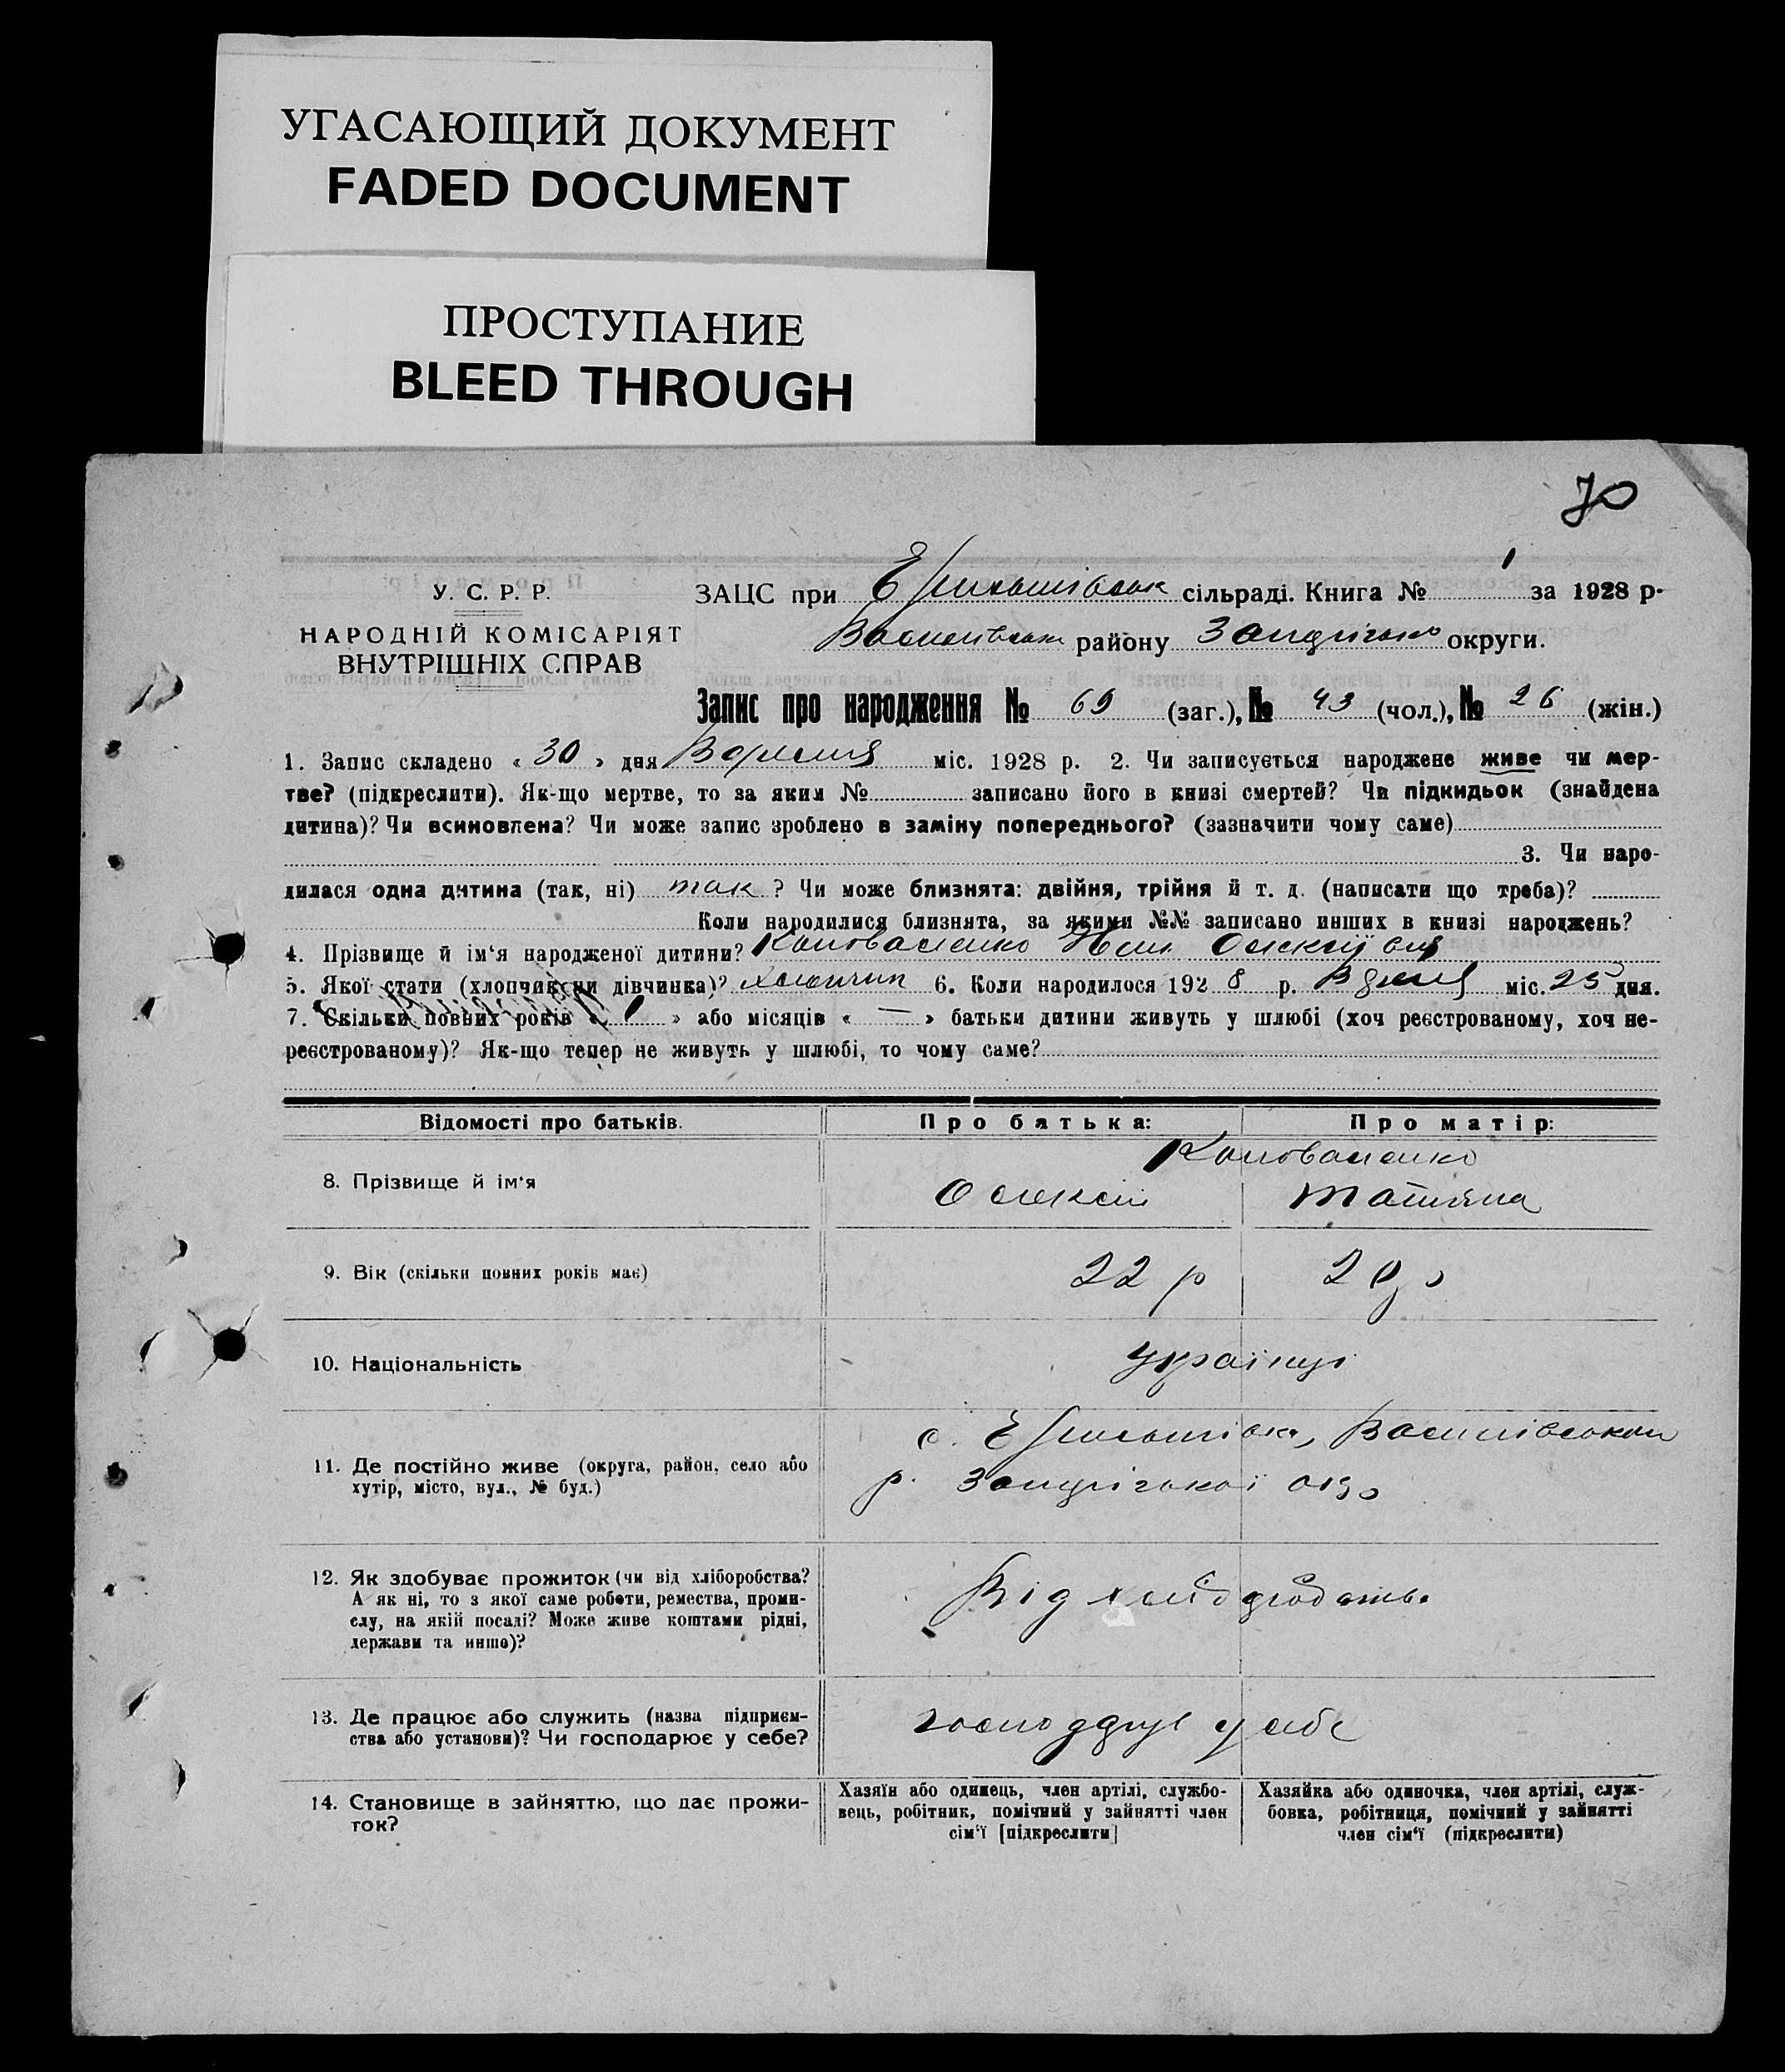 УГАСАЮЩИЙ ДОКУМЕНТ
FADED DOCUMENT
ПРОСТУПАНИЕ
BLEED THROUGH
70
У. С. Р. Р.
НАРОДНІЙ КОМІСАРІЯТ
ВНУТРІШНІХ СПРАВ
ЗАЦС при сільраді. Книга № 1 за 1928 р.
району округи.
Запис про народження № 69 (заг.), № 43 (чол.), № 26 (жін.)
1. Запис складено « 30 » дня міс. 1928 р. 2. Чи записується народжене живе чи мер-
тве? (підкреслити). Як-що мертве, то за яким № записано його в книзі смертей? Чи підкидьок (знайдена
дитина)? Чи всиновлена? Чи може запис зроблено в заміну попереднього? (зазначити чому саме)
3. Чи наро-
дилася одна дитина (так, ні) так ? Чи може близнята: двійня, трійня й т. д. (написати що треба)?
Коли народилися близнята, за якими №№ записано инших в книзі народжень?
4. Прізвище й ім'я народженої дитини? Коноваленко Олексійович
5. Якої стати (хлопчик чи дівчинка)? хлопчик 6. Коли народилося 192 8 р. міс. 25 дня.
7. Скільки повних років « 1 » або місяців « — » батьки дитини живуть у шлюбі (хоч реєстрованому, хоч не-
реєстрованому)? Як-що тепер не живуть у шлюбі, то чому саме?
Відомості про батьків. Про батька: Про матір:
Коноваленко
8. Прізвище й ім'я Олексій Татяна
9. Вік (скільки повних років має) 22 р
10. Національність українці
11. Де постійно живе (округа, район, село або
хутір, місто, вул., № буд.)
с. Василівськом
р. Запорізької окр
12. Як здобуває прожиток (чи від хліборобства?
А як ні, то з якої саме роботи, ремества, проми-
слу, на якій посаді? Може живе коштами рідні,
держави та инше)?
Від хліборобства
13. Де працює або служить (назва підприєм-
ства або установи)? Чи господарює у себе?
господарує у себе
14. Становище в зайняттю, що дає прожи-
ток?
Хазяїн або одинець, член артілі, службо-
вець, робітник, помічний у зайнятті член
сім'ї [підкреслити]
Хазяйка або одиночка, член артілі, служ-
бовка, робітниця, помічний у зайнятті
член сім'ї (підкреслити)